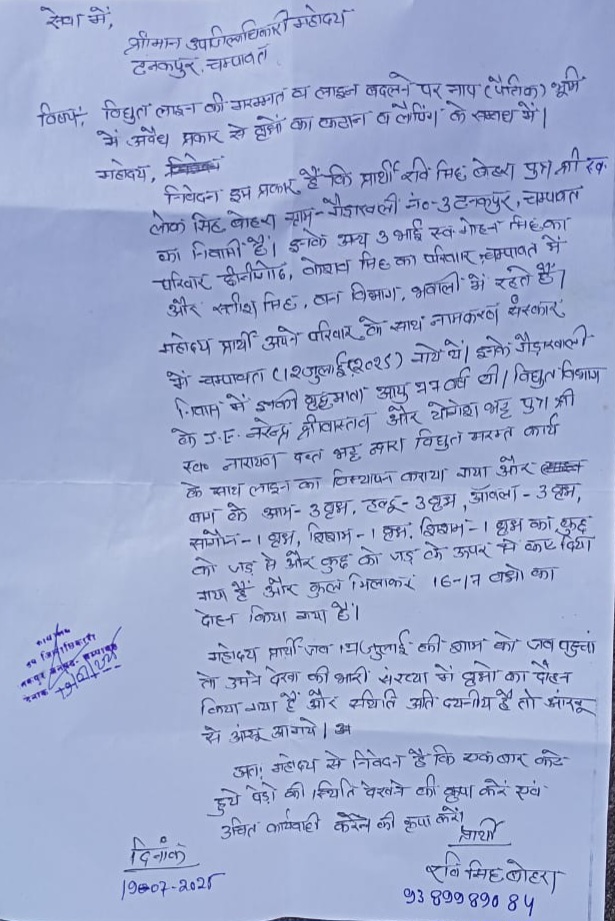 सेवा में,
श्रीमान उपजिलाधिकारी महोदय
टनकपुर, चम्पावत
विषय: विद्युत लाइन की मरम्मत व लाइन बदलने पर नाप (पैतिक) भूमि
में अवैध प्रकार से वृक्षों का कटान व लैपिंग के सम्बन्ध में।
महोदय,
निवेदन इस प्रकार है कि प्रार्थी रवि सिंह बोहरा पुत्र श्री स्व.
लोक सिंह बोहरा ग्राम-गैड़ाखाली नं०-3 टनकपुर, चम्पावत
का निवासी है। इनके अन्य 3 भाई स्व मोहन सिंह का
परिवार छीनीगोठ, सिंह का परिवार चम्पावत में
और सतीश सिंह, वन विभाग, भवाली में रहते हैं।
महोदय प्रार्थी अपने परिवार के साथ नामकरण संस्कार
में चम्पावत (12 जुलाई 2025) गये थे। इनके गैड़ाखाली
निवास में इनकी माता आयु वर्ष थी। विद्युत विभाग
के J.E. नरेन्द्र श्रीवास्तव और योगेश भट्ट पुत्र श्री
स्व० नारायण दत्त भट्ट द्वारा विद्युत मरम्मत कार्य
के साथ लाइन का विस्थापन कराया गया और
बाग के आम-3 वृक्ष, हल्दू-3 वृक्ष, आँवला-3 वृक्ष,
सागौन-1 वृक्ष, शिशम-1 वृक्ष, शिशम-1 वृक्ष का कुछ
को जड़ से और कुछ को जड़ के ऊपर से काट दिया
गया है और कुल मिलाकर 16-17 वृक्षों का
दोहन किया गया है।
महोदय प्रार्थी जब जुलाई की शाम को जब पहुचा
तो उसने देखा की भारी संख्या में वृक्षों का दोहन
किया गया है और स्थिति अति दयनीय है तो आंख
से आंसू आ गये।
अतः महोदय से निवेदन है कि एक बार कटे
हुये पेड़ों की स्थिति देखने की कृपा करें एवं
उचित कार्यवाही करने की कृपा करें।
प्रार्थी
रवि सिंह बोहरा
9389989084
दिनांक
19-07-2025